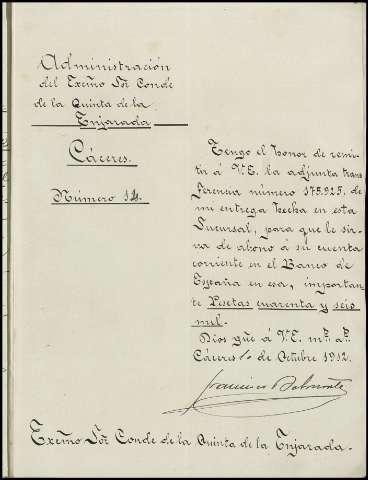 Administración
del Excmo Sor Conde
de la Quinta de la
Enjarada
Cáceres.
Número 14.
Tengo el honor de remi-
tir á V.E. la adjunta trans
ferencia número 175.925. de
mi entrega hecha en esta
Sucursal, para que le sir-
va de abono á su cuenta
corriente en el Banco de
España en esa, importan-
te Pesetas cuarenta y seis
mil.
Dios gûe á V.E. ms. as.
Cáceres 1o de Octubre 1912.
Francisco
Excmo Sor Conde de la Quinta de la Enjarada.